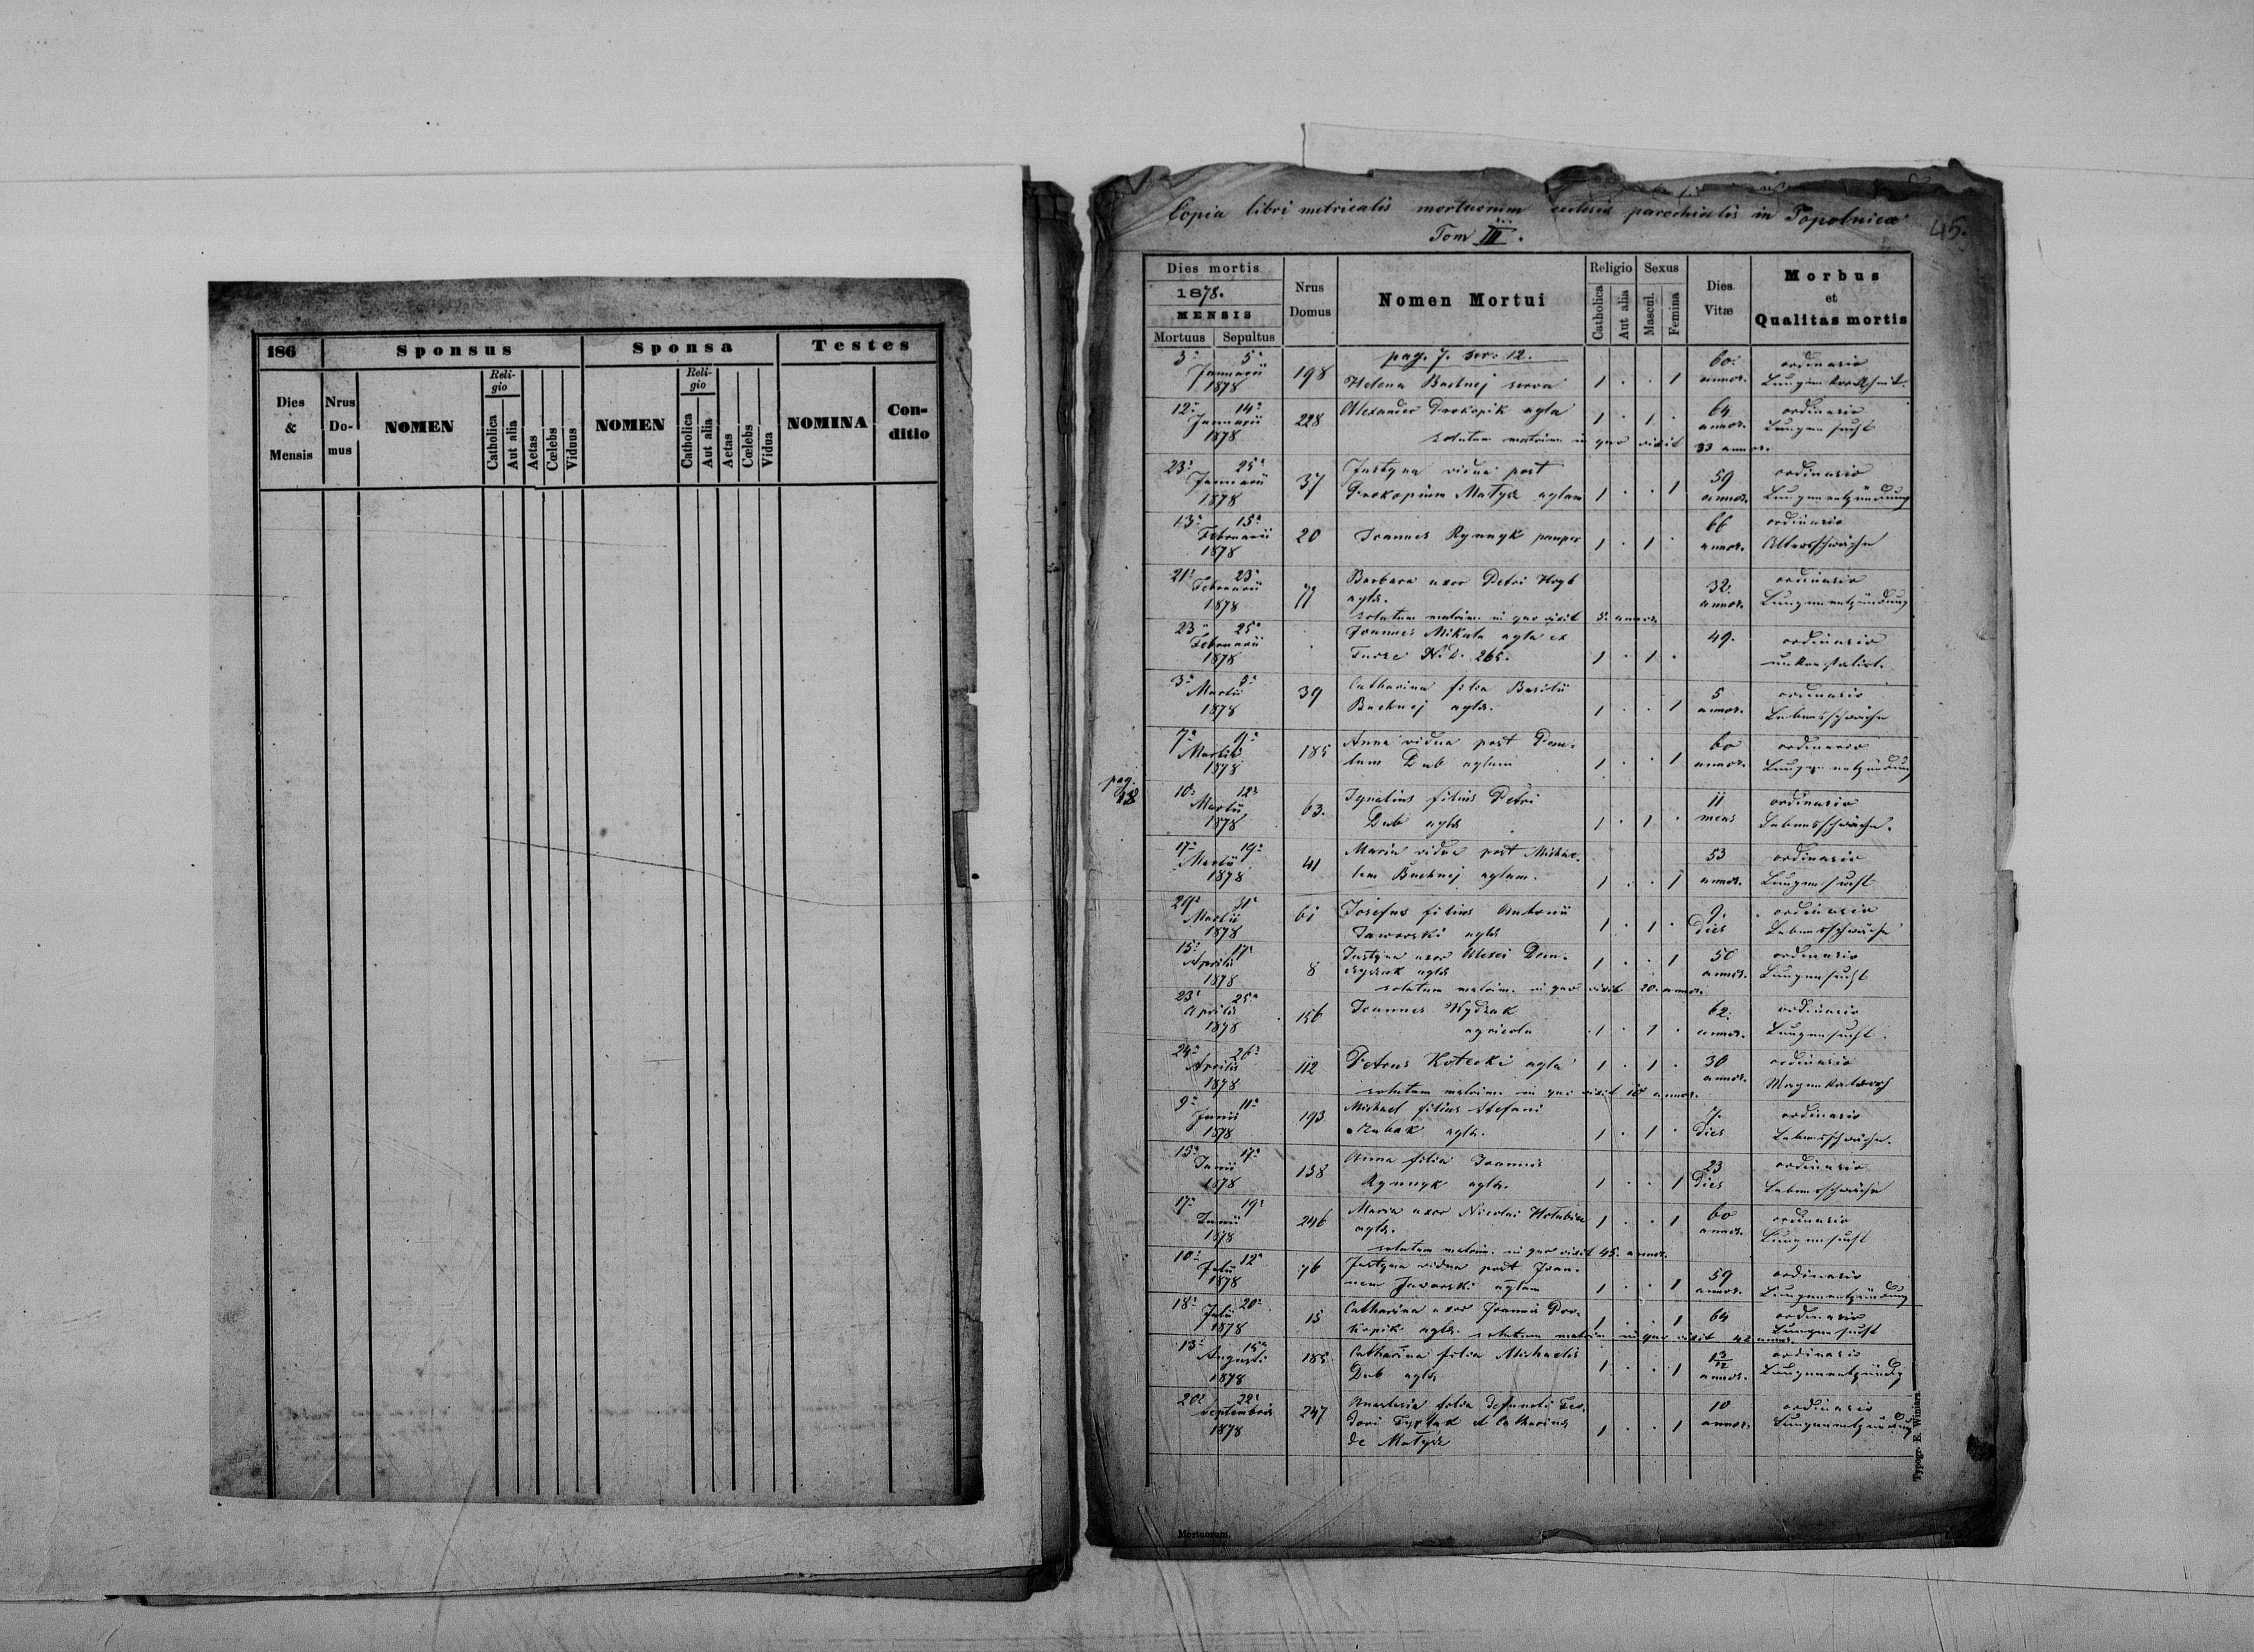 186
Sponsus
Sponsa
Testes
Dies & Mensis
Nrus Domus
NOMEN
Religio
Catholica
Aut alia
Aetas
Cœlebs
Viduus
NOMEN
Religio
Catholica
Aut alia
Aetas
Cœlebs
Vidua
NOMINA
Conditio
Copia libri metricalis mortuorum ecclesiæ parochialis in Topolnica
Tom III.
45.
Dies mortis
1878.
MENSIS
Mortuus Sepultus
Nrus Domus
Nomen Mortui
Religio
Catholica
Aut alia
Sexus
Mascul.
Femina
Dies Vitæ
Morbus et Qualitas mortis
pag. 7. ser. 12.
3 5 Januarii 1878 198 Helena Bachnij serva 1 . . 1 60 annor. ordinario
12 14 Januarii 1878 228 Alexander Prokopik agla 1 . 1 . 64 annor. ordinario Lungensucht
solutum matrim. in quo vixit 33 annos.
23 25 Januarii 1878 37 Justyna vidua post
Prokopium Matysz aglam 1 . . 1 59 annor. ordinario Lungenentzündung
13 15 Februarii 1878 20 Joannes Rynnyk pauper 1 . 1 . 66 annor. ordinario Altersschwäche
21 23 Februarii 1878 77 Barbara uxor Petri
aglæ. 32 annor. ordinario Lungenentzündung
solutum matrim. in quo vixit 5. annos.
23 25 Februarii 1878 Joannes Mikula agla ex
Turze N. D. 265. 1 . 1 . 49. ordinario
3 5 Martii 1878 39 Catharina filia Basilii
Bachnij aglæ. 1 . . 1 5 annor. ordinario Lebensschwäche
7 9 Martii 1878 185 Anna vidua post
Dub aglam 1 . . 1 60 annor. ordinario Lungenentzündung
pag. 18
10 12 Martii 1878 63. Ignatius filius Petri
Dub aglæ 1 . 1 . 11 mens ordinario Lebensschwäche.
17 19 Martii 1878 41 Maria vidua post Michae-
lem Bachnij aglam. 1 . . 1 53 annor. ordinario Lungensucht
29 31 Martii 1878 61 Josefus filius Antonii
Jaworski aglæ 1 . 1 . 9. dies ordinario Lebensschwäche
15 17 Aprilis 1878 8 Justyna uxor Alexii
aglæ 1 . . 1 50 annor. ordinario Lungensucht
solutum matrim. in quo vixit 20. annos.
23 25 Aprilis 1878 156 Joannes
agricola 1 . 1 . 62. annor. ordinario Lungensucht.
24 26 Aprilis 1878 112 Petrus Kotecki agla 1 . 1 . 30 annor. ordinario Magenkatarrh
solutum matrim. in quo vixit 10 annos.
9 11 Junii 1878 193 Michael filius Stefani
aglæ. 1 . 1 . 7. dies ordinario Lebensschwäche.
15 17 Junii 1878 138 Anna filia Joannis
Rynnyk aglæ. 1 . . 1 23 dies ordinario Lebensschwäche
17 19 Junii 1878 246 Maria uxor Nicolai
aglæ. 1 . . 1 60 annor. ordinario Lungensucht
solutum matrim. in quo vixit 45. annos.
10 12 Julii 1878 76 Justyna vidua post Joan-
nem Jaworski aglam 1 . . 1 59 annor. ordinario Lungenentzündung
18 20 Julii 1878 15 Catharina uxor Joannis Pro-
kopik aglæ. 1 . . 1 64 ordinario Lungensucht
solutum matrim. in quo vixit 42 annos.
13 15 Augusti 1878 185 Catharina filia Michaelis
Dub aglæ 1 . . 1 1 3/12 annor. ordinario
20 22 Septembris 1878 247 Anastasia filia defuncti Teo-
dori et Catharinæ
de Matysz 1 . . 1 10 annor. ordinario Lungenentzündung
Typogr. E. Winiarz.
Mortuorum.